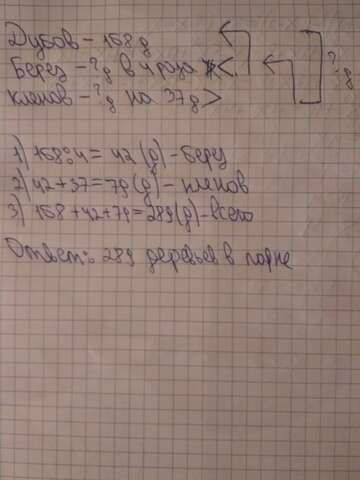 Дубов - 168 д
Берез - ? д в 4 раза <
Кленов - ? д на 37 д >
? д
1) 168 : 4 = 42 (д) - берез
2) 42 + 37 = 79 (д) - кленов
3) 168 + 42 + 79 = 289 (д) - всего
Ответ: 289 деревьев в парке